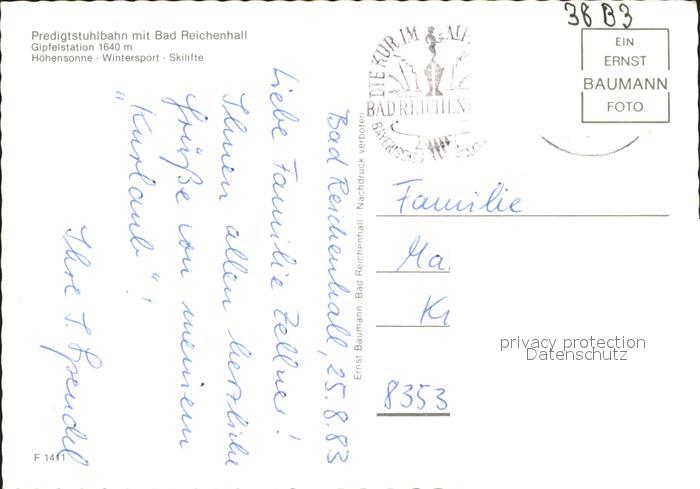 Predigtstuhlbahn mit Bad Reichenhall
Gipfelstation 1640 m
Höhensonne · Wintersport · Skilifte
38 B3
EIN
ERNST
BAUMANN
FOTO
DIE KUR IM
BAD REICHEN
BAYERISCHES
Bad Reichenhall, 25.8.83
Liebe Familie Zellner!
Ihnen allen herzliche
Grüße von meinem
"Kurlaub"!
Ihre
Ernst Baumann, Bad Reichenhall · Nachdruck verboten
Familie
Ma
8353
privacy protection
Datenschutz
F 1411